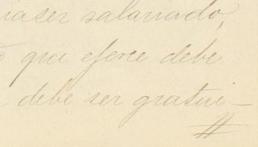 hacer salariado,
que eferce debe
debe ser gratui-